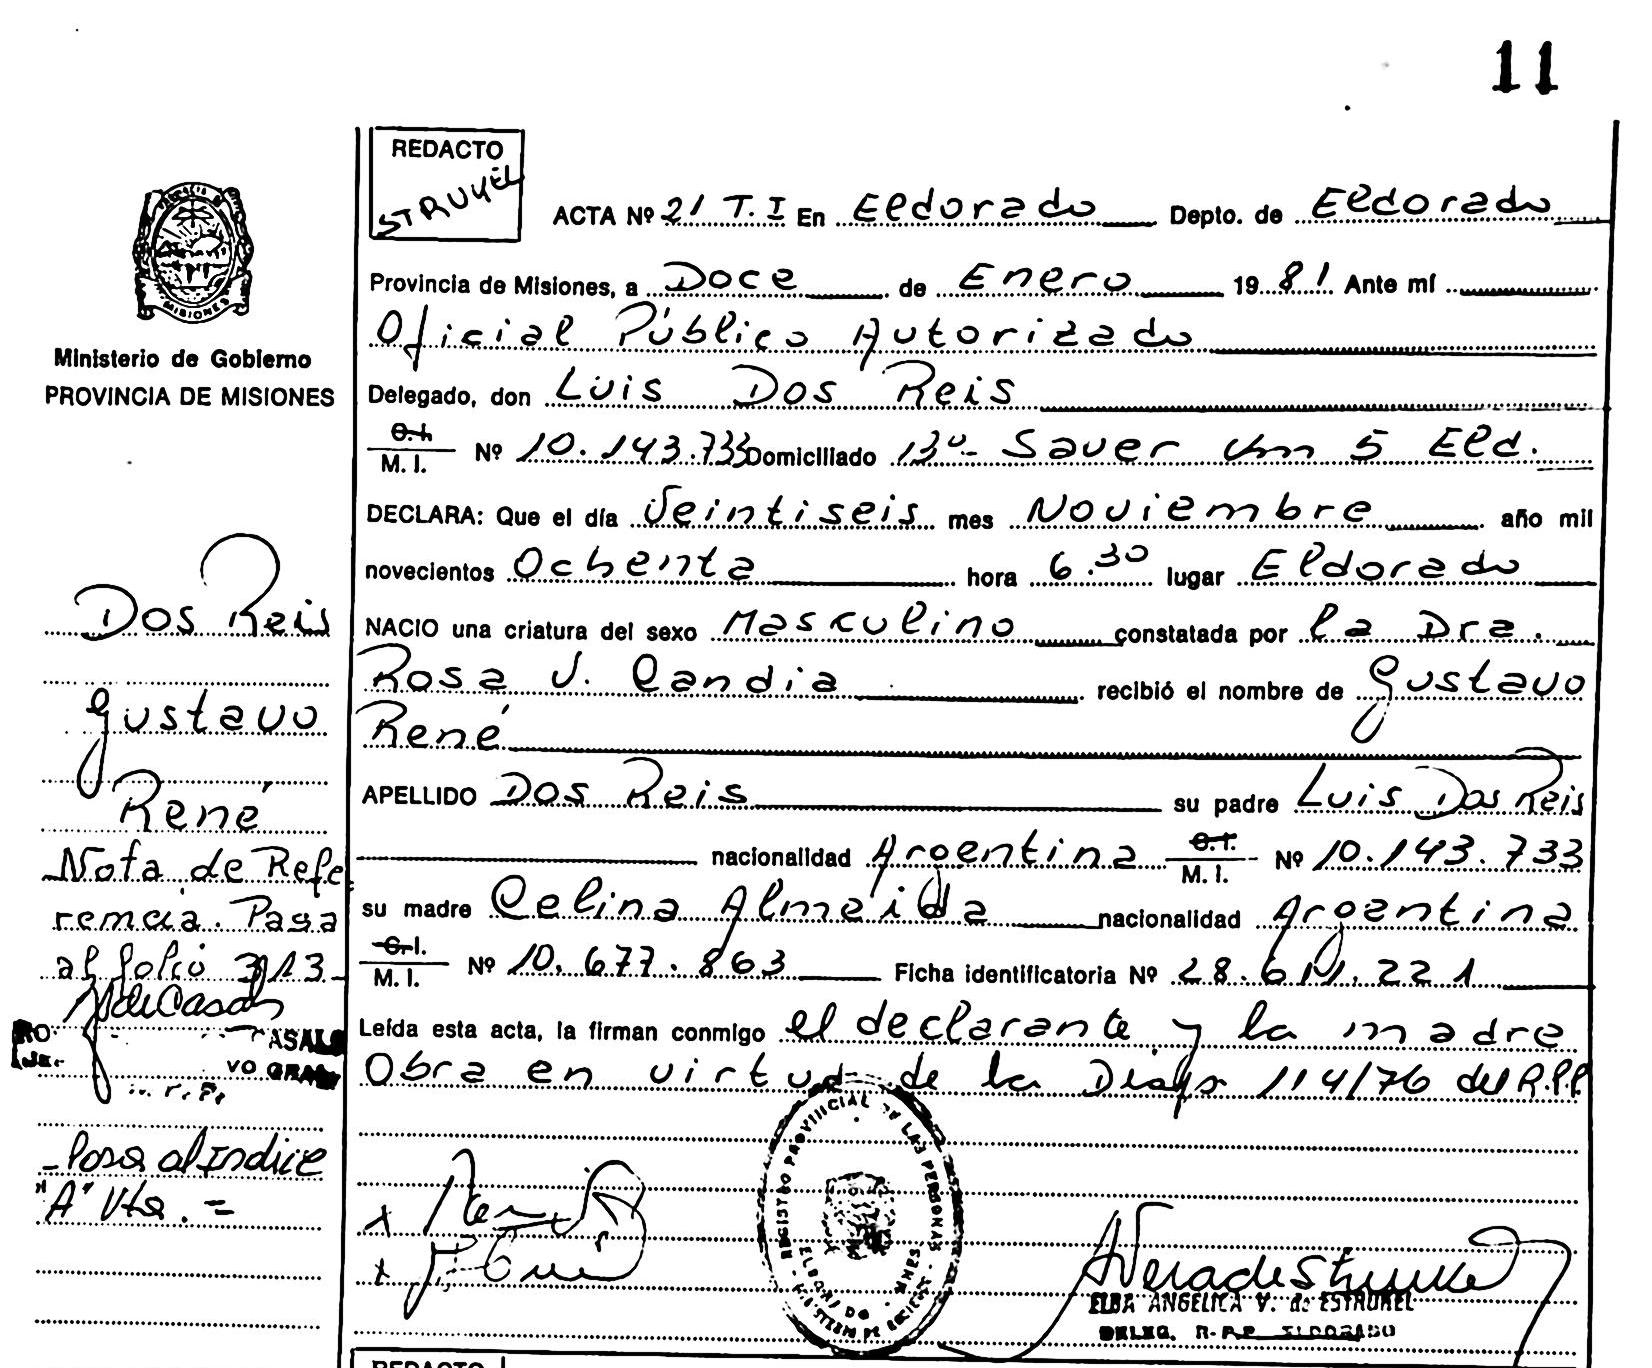 11
REDACTO
STRUKEL
ACTA Nº 21 T.I En Eldorado Depto. de Eldorado
Provincia de Misiones, a Doce de Enero 19 81 Ante mí
Oficial Público Autorizado
Delegado, don Luis Dos Reis
C.I.
M. I. Nº 10.143.733 Domiciliado 13º- Sauer Km 5 Eld.
DECLARA: Que el día Veintiseis mes Noviembre año mil
novecientos Ochenta hora 6.30 lugar Eldorado
NACIO una criatura del sexo Masculino constatada por la Dra.
Rosa V. Candia recibió el nombre de Gustavo
René
APELLIDO Dos Reis su padre Luis Dos Reis
nacionalidad Argentina C.I.
M. I. Nº 10.143.733
su madre Celina Almeida nacionalidad Argentina
C.I.
M. I. Nº 10.677.863 Ficha identificatoria Nº 28.611.221
Leída esta acta, la firman conmigo el declarante y la madre
Obra en virtud de la 114/76 del R.P.P.
REGISTRO PROVINCIAL DE LAS PERSONAS
ELDORADO MNES
ELBA ANGELICA V. de ESTRUKEL
DELEG. R.P.P. ELDORADO
MISIONES
Ministerio de Gobierno
PROVINCIA DE MISIONES
Dos Reis
Gustavo
René
Nota de Refe
rencia. Pasa
al folio
CASALS
R. P. P.
- Pasa al Indice
"A" Vta. =
REDACTO